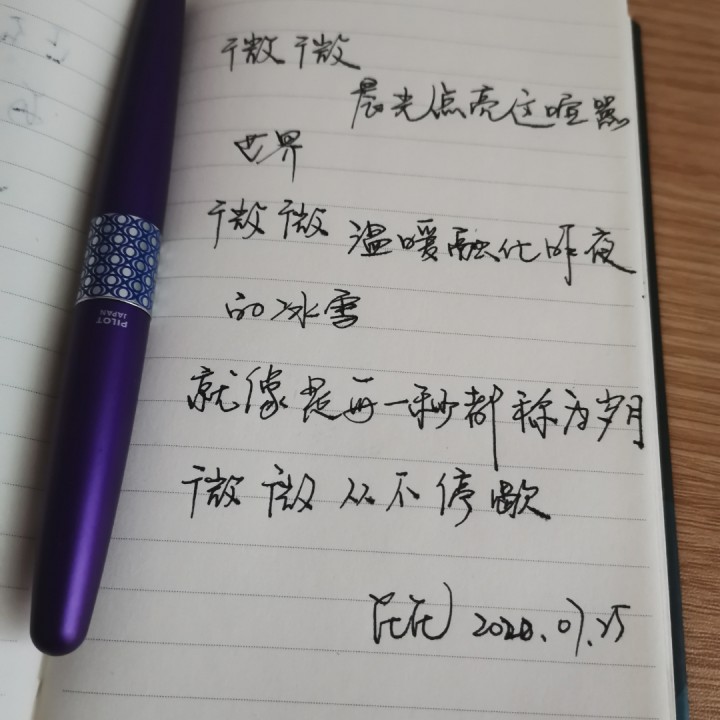 微微
晨光点亮这喧嚣
世界
微微 温暖融化昨夜
的冰雪
就像是每一秒都称为岁月
微微从不停歇
2020.07.25
PILOT
JAPAN